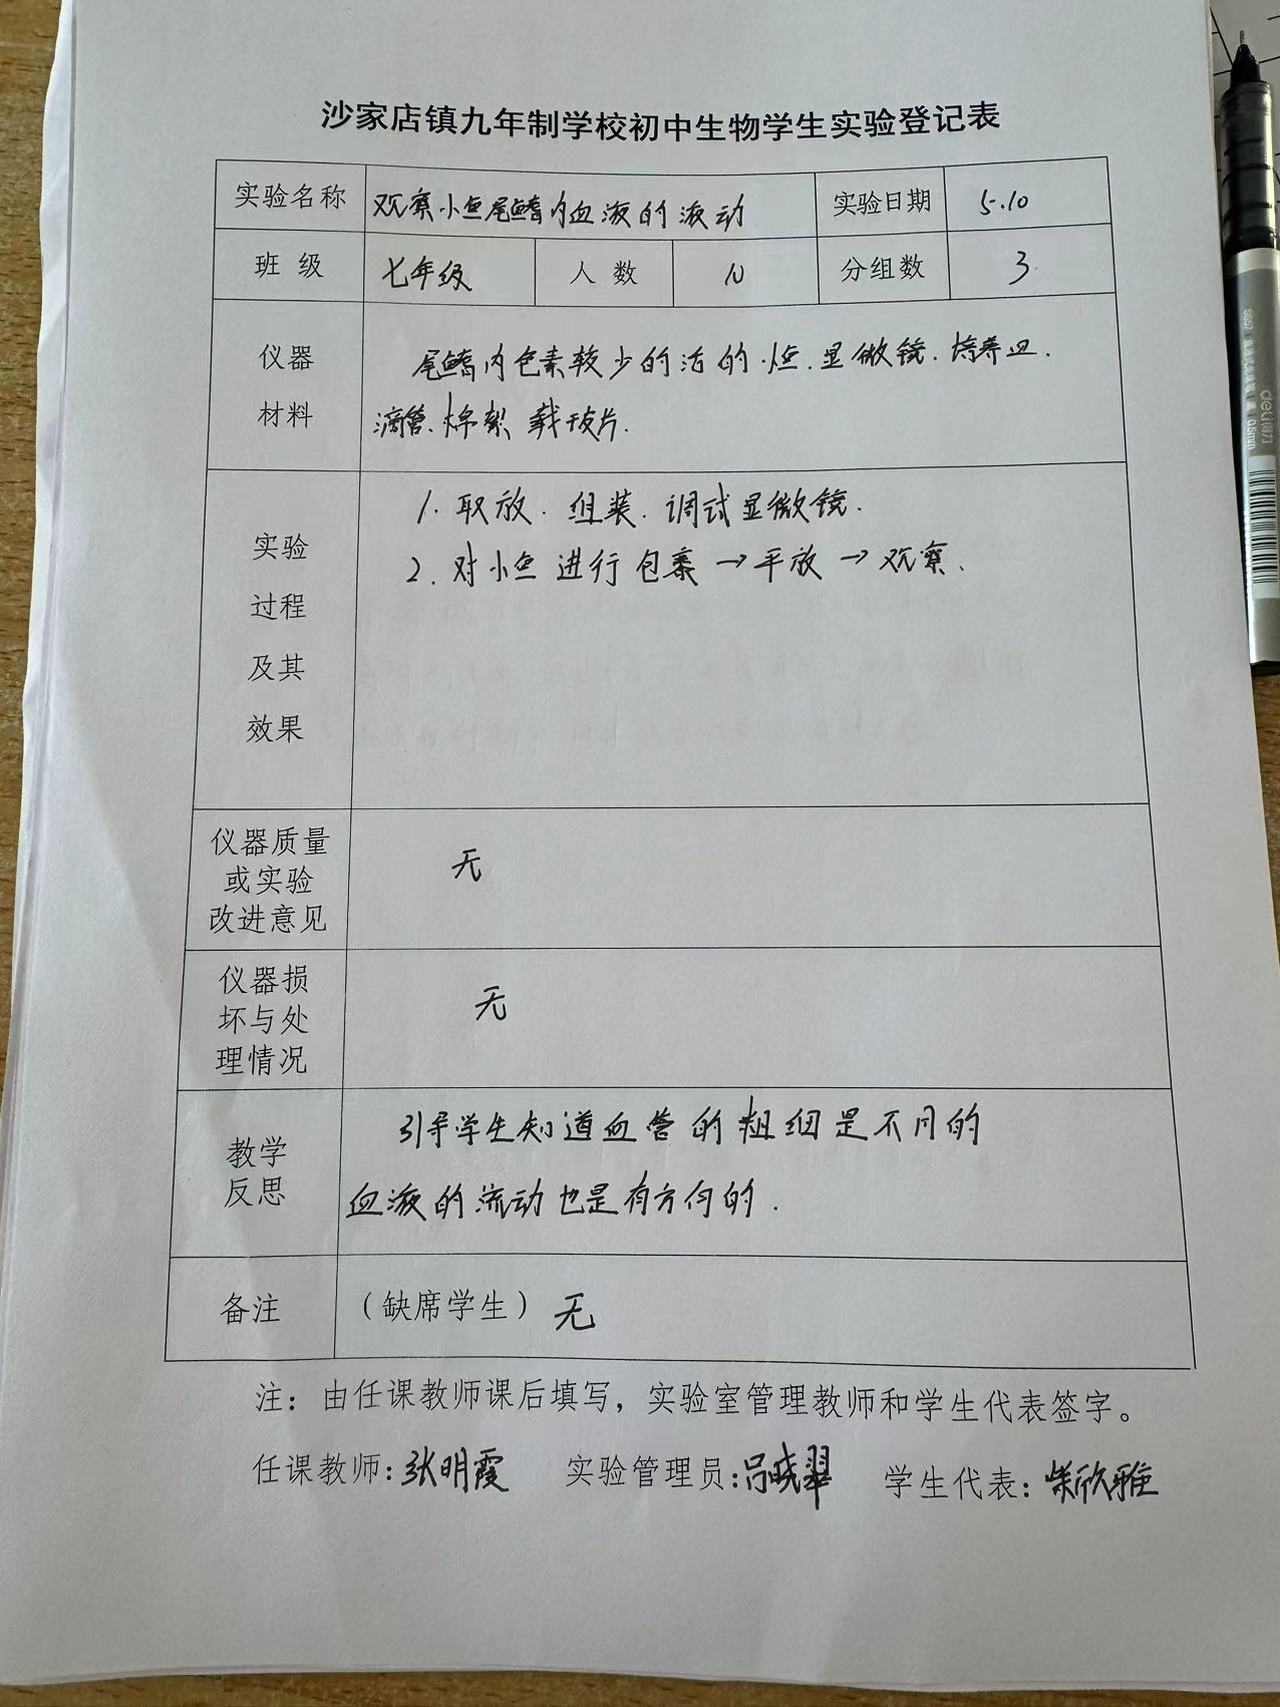 沙家店镇九年制学校初中生物学生实验登记表
实验名称 观察小鱼尾鳍内血液的液动 实验日期 5.10
班级 七年级 人数 分组数 3
仪器材料 尾鳍内色素较少的活的小鱼.显微镜.培养皿.
滴管.棉絮 载玻片.
实验过程及其效果 1.取放.组装.调试显微镜.
2.对小鱼进行包裹→平放→观察.
仪器质量或实验改进意见 无
仪器损坏与处理情况 无
教学反思 引导学生知道血管的粗细是不同的
血液的流动也是有方向的.
备注 (缺席学生) 无
注:由任课教师课后填写,实验室管理教师和学生代表签字。
任课教师:张明霞 实验管理员:吕晓翠 学生代表:柴欣雅
deli得力 0.5mm